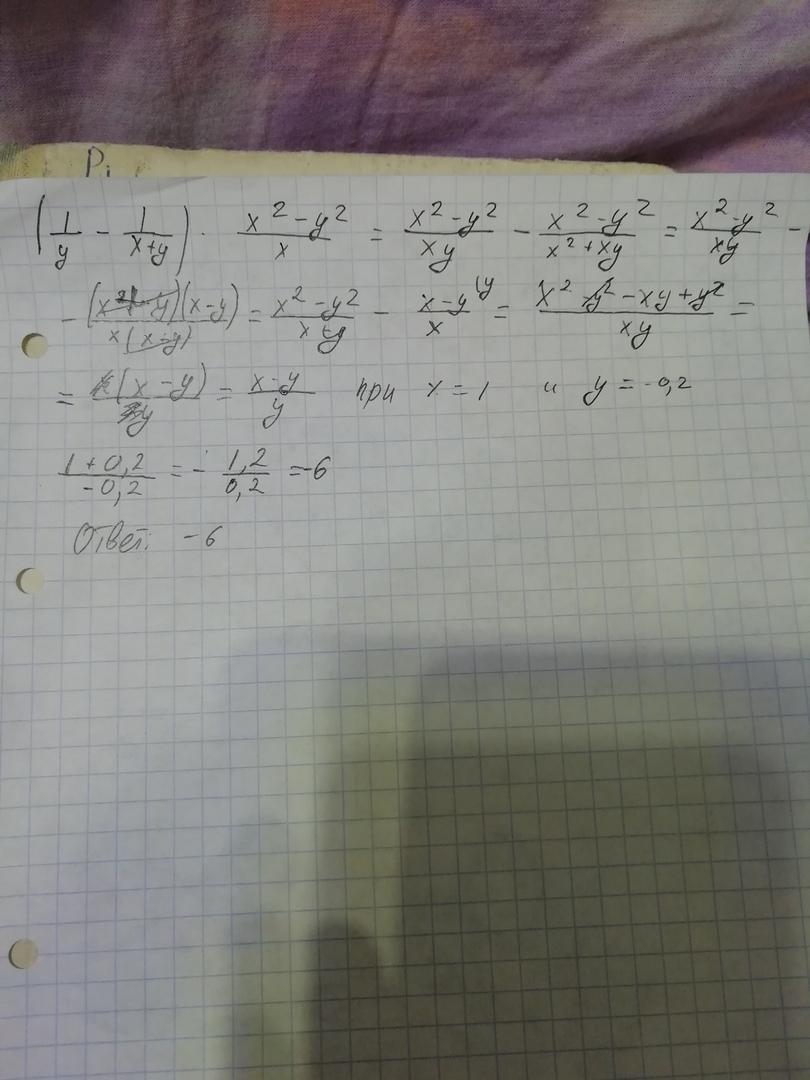 Pi
(1/y - 1/(x+y)) · (x² - y²)/x = (x² - y²)/(xy) - (x² - y²)/(x² + xy) = (x² - y²)/(xy) -
- ((x + y)(x - y))/(x(x + y)) = (x² - y²)/(xy) - (x - y)/x \y = (x² - y² - xy + y²)/(xy) =
= (x(x - y))/(xy) = (x - y)/y при x = 1 и y = -0,2
(1 + 0,2)/(-0,2) = - 1,2/0,2 = -6
Ответ: -6